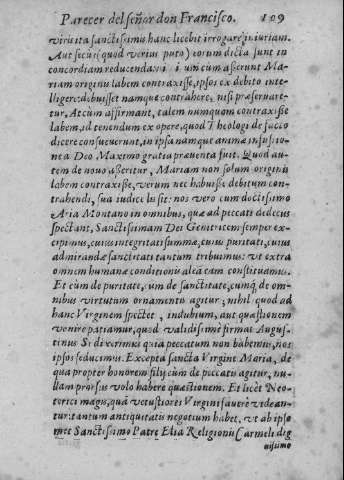 Parecer del señor don Francisco. 109
viris ita sanctissimis hanc licebit irrogare iniuriam.
Aut secus (quod verius puto) eorum dicta sunt in
concordiam reducenda cum asserunt Mariam
originis labem contraxisse, ipsos ex debito intelligere
debuisset namque contrahere, nisi præservaretur.
At cum affirmant, talem numquom contraxisse
labem, id tenendum ex opere, quod Theologi de facto
dicere consueuerunt, in ipsa namque animæ infusione
a Deo Maximo gratia præuenta fuit. Quod autem
de nouo asseritur, Mariam non solum originis
labem contraxisse, verum nec habuisse debitum contrahendi,
sua iudice lis sit: nos vero cum doctissimo
Aria Montano in omnibus, quæ ad peccati dedecus
spectant, Sanctissimam Dei Genitricem semper excipimus,
cuius integritati summæ, cuius puritati, cuius
admirandæ sanctitati tantum tribuimus: vt extra
omnem humanæ conditionis aleam constituamus.
Et cùm de puritate, cum de sanctitate, cumq́; de omnibus
virtutum ornamento agitur; nihil quod ad
hanc Virginem spectet, indubium, aut quæstionem
venire patiamur, quod validissimè firmat Augustinus
Si dixerimus quia peccatum non habemus, nos
ipsos seducimus. Excepta sancta Virgine Maria, de
qua propter honorem filij cùm de peccatis agitur, nullam
prorsus volo habere quæstionem. Et licèt Neoterici
magis, quã vetustiores Virgini fauere videantur:
tantum antiquitatis negotium habet, vt ab ipso
met Sanctissimo Patre Elia Religionis Carmeli dig
nissimo